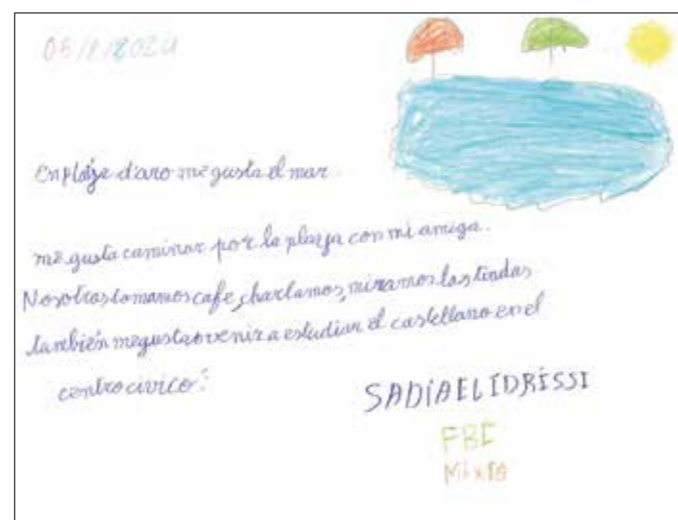 En platje d'aro me gusta el mar.
me gusta caminar por la playa con mi amiga.
Nosotras tomamos cafe, charlamos, miramos las tindas
también me gusta venir a estudiar el castellano en el
centro civico.
SADIA EL IDRISSI
FBI
Mixto